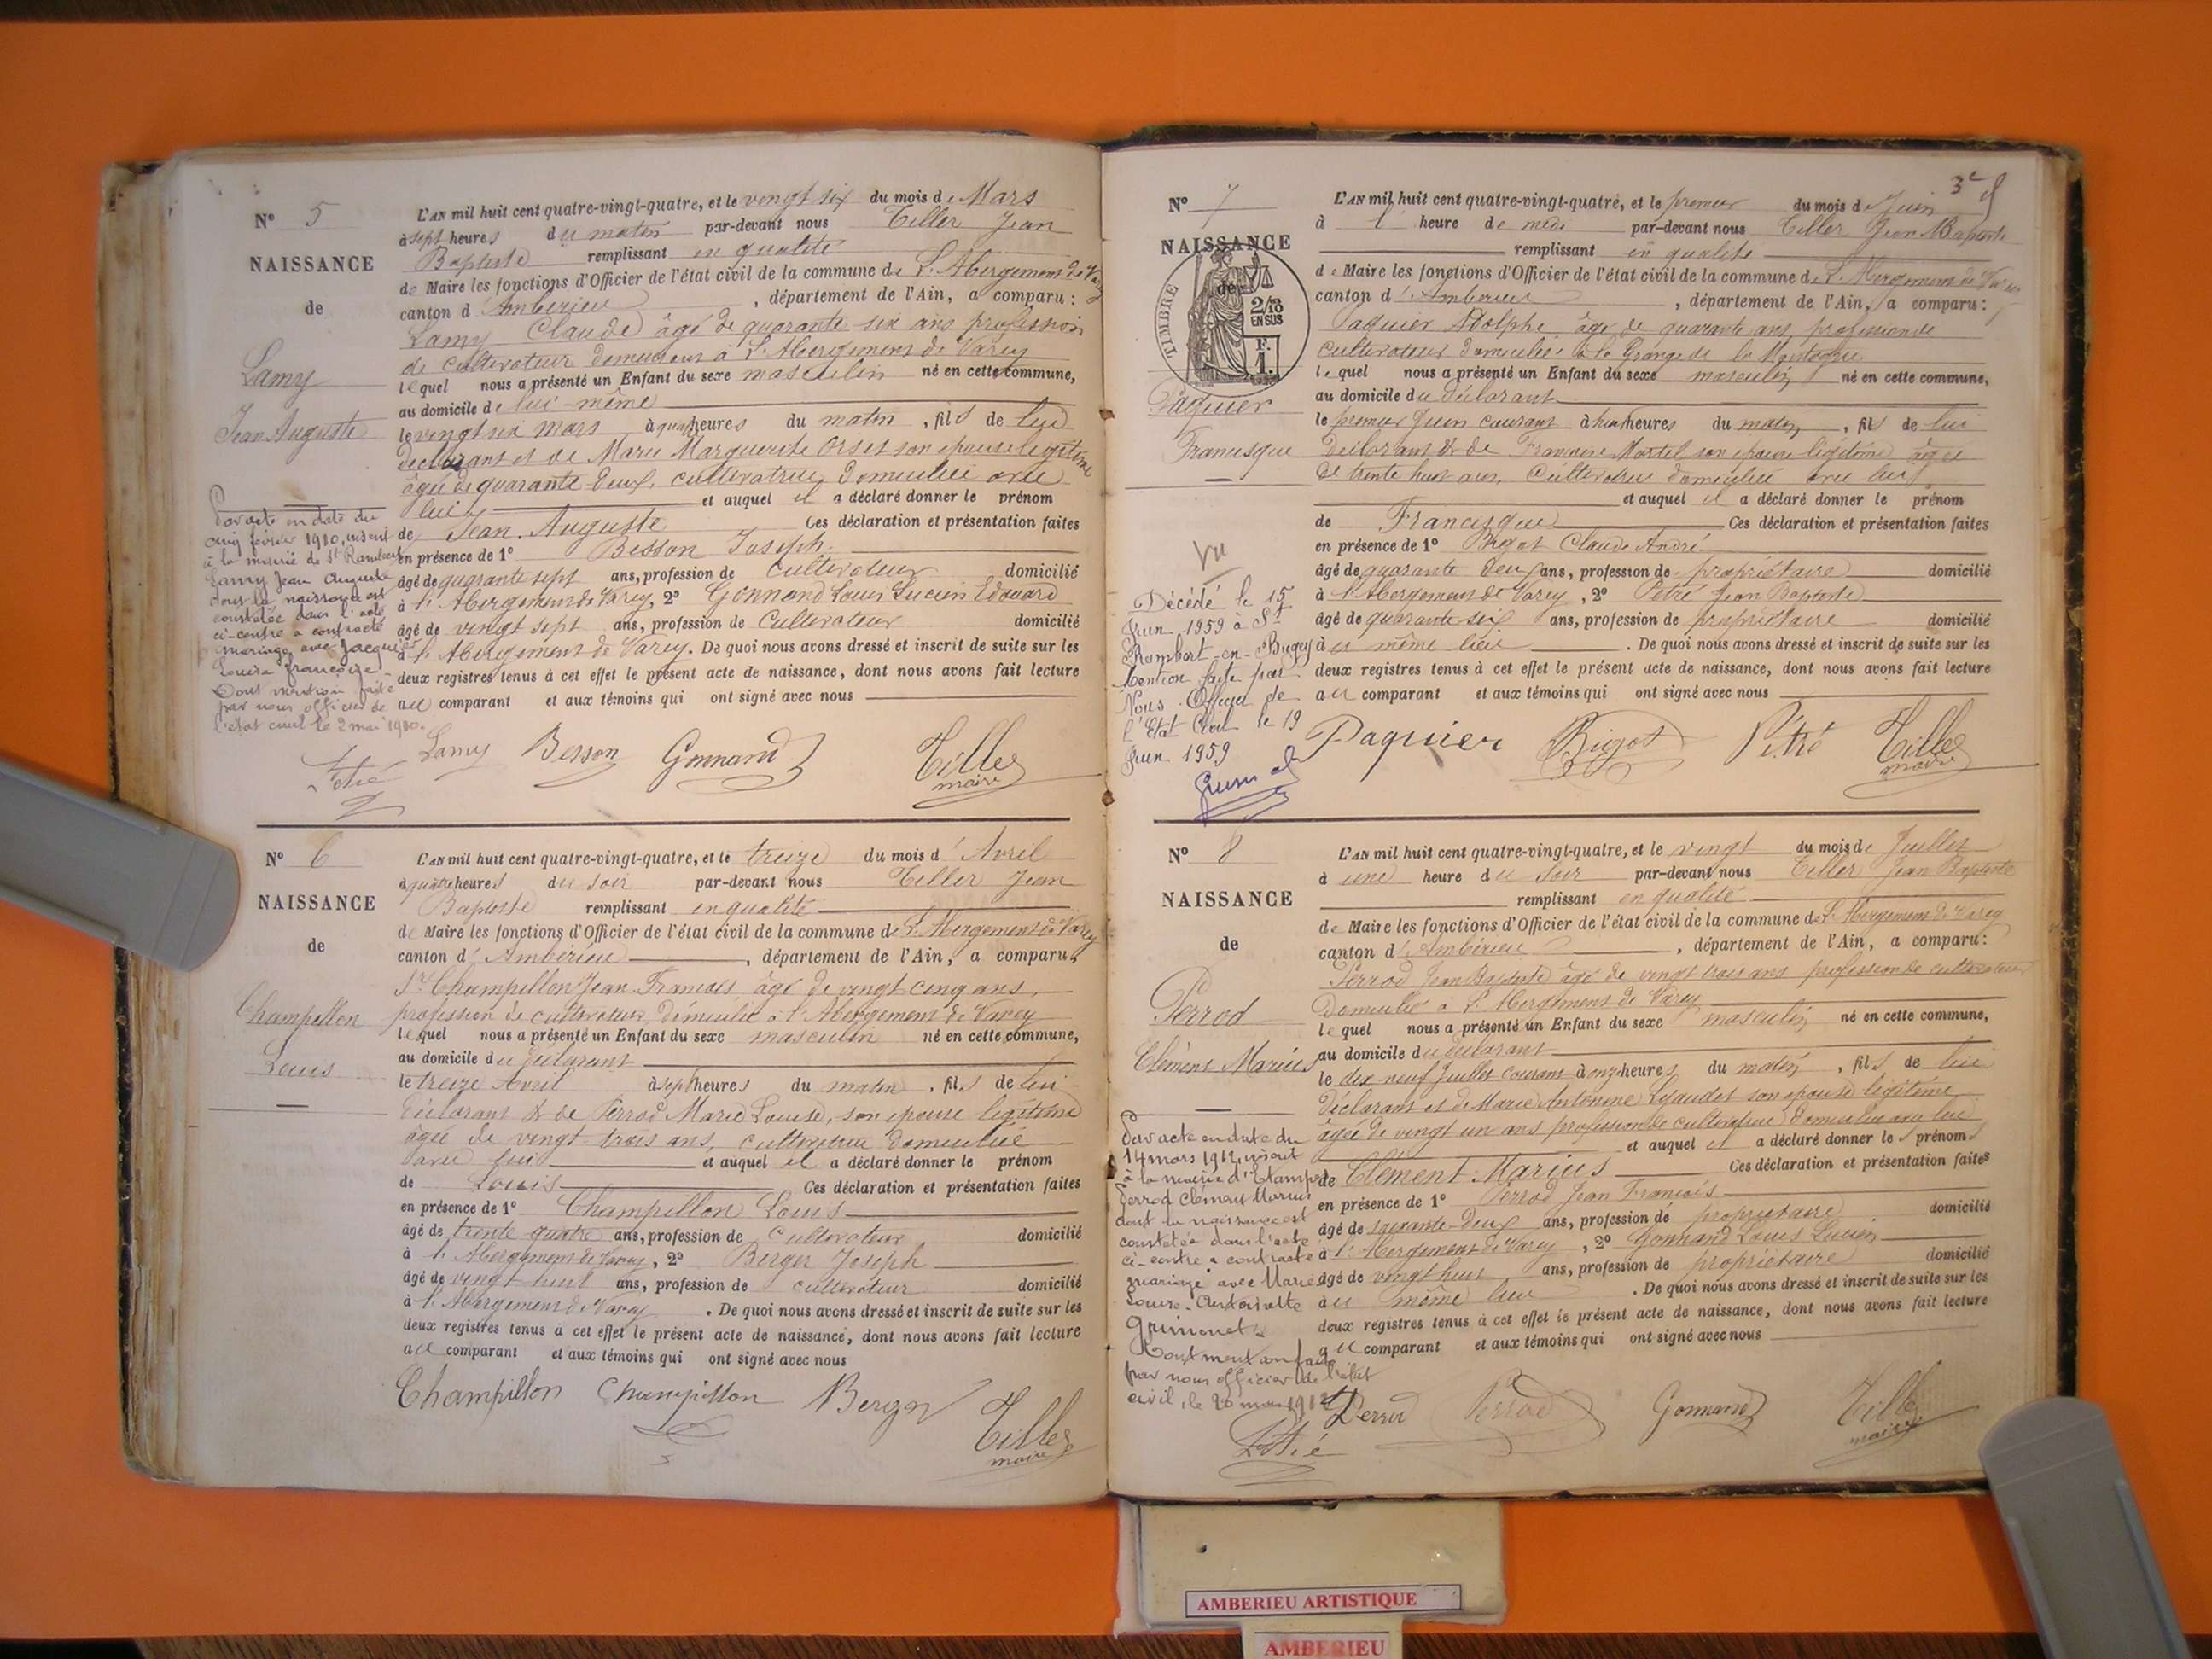 N° 5
NAISSANCE
de
Lamy
Jean Auguste
L'AN mil huit cent quatre-vingt-quatre, et le vingt six du mois de Mars
à sept heures du matin par-devant nous Tiller Jean
Baptiste remplissant en qualité
de Maire les fonctions d'Officier de l'état civil de la commune de L'Abergement de Varey
canton d'Ambérieu, département de l'Ain, a comparu :
Lamy Claude âgé de quarante six ans profession
de cultivateur demeurant à L'Abergement de Varey
lequel nous a présenté un Enfant du sexe masculin né en cette commune,
au domicile de lui-même
le vingt six mars à quatre heures du matin, fils de lui
déclarant et de Marie Marguerite Orset son épouse légitime
âgée de quarante deux, cultivatrice, domiciliée avec
lui et auquel il a déclaré donner le prénom
de Jean Auguste Ces déclaration et présentation faites
en présence de 1° Besson Joseph
âgé de quarante sept ans, profession de Cultivateur domicilié
à l'Abergement de Varey, 2° Gonnand Louis Lucien Edouard
âgé de vingt sept ans, profession de Cultivateur domicilié
à l'Abergement de Varey. De quoi nous avons dressé et inscrit de suite sur les
deux registres tenus à cet effet le présent acte de naissance, dont nous avons fait lecture
au comparant et aux témoins qui ont signé avec nous
Par acte en date du
cinq février 1910, inscrit
à la mairie de St Rambert
Lamy Jean Auguste
dont la naissance est
constatée dans l'acte
ci-contre a contracté
mariage avec Jacquier
Louise Françoise
Dont mention faite
par nous officier de
l'état civil le 2 mai 1910.
Lamy Besson Gonnand Tiller
maire
N° 6
NAISSANCE
de
Champillon
Louis
L'AN mil huit cent quatre-vingt-quatre, et le treize du mois d'Avril
à quatre heures du soir par-devant nous Tiller Jean
Baptiste remplissant en qualité
de Maire les fonctions d'Officier de l'état civil de la commune de L'Abergement de Varey
canton d'Ambérieu, département de l'Ain, a comparu
Sr Champillon Jean François âgé de vingt cinq ans,
profession de cultivateur, domicilié à l'Abergement de Varey
lequel nous a présenté un Enfant du sexe masculin né en cette commune,
au domicile du déclarant
le treize Avril à sept heures du matin, fils de lui
déclarant & de Perrod Marie Louise, son épouse légitime
âgée de vingt trois ans, cultivatrice domiciliée
avec lui et auquel il a déclaré donner le prénom
de Louis Ces déclaration et présentation faites
en présence de 1° Champillon Louis
âgé de trente quatre ans, profession de Cultivateur domicilié
à l'Abergement de Varey, 2° Berger Joseph
âgé de vingt huit ans, profession de cultivateur domicilié
à l'Abergement de Varey. De quoi nous avons dressé et inscrit de suite sur les
deux registres tenus à cet effet le présent acte de naissance, dont nous avons fait lecture
au comparant et aux témoins qui ont signé avec nous
Champillon Champillon Berger Tiller
maire
3e
N° 7
NAISSANCE
de
TIMBRE
2/10
EN SUS
F.
1.
Paquier
Francisque
L'AN mil huit cent quatre-vingt-quatre, et le premier du mois de Juin
à 1 heure de midi par-devant nous Tiller Jean Baptiste
remplissant en qualité
de Maire les fonctions d'Officier de l'état civil de la commune de L'Abergement de Varey
canton d'Ambérieu, département de l'Ain, a comparu :
Paquier Adolphe âgé de quarante ans, profession de
cultivateur domicilié à la Grange de la Montagne
lequel nous a présenté un Enfant du sexe masculin né en cette commune,
au domicile du déclarant
le premier Juin courant à huit heures du matin, fils de lui
déclarant & de Françoise Martel son épouse légitime âgée
de trente huit ans, cultivatrice domiciliée avec lui
et auquel il a déclaré donner le prénom
de Francisque Ces déclaration et présentation faites
en présence de 1° Bigot Claude André
âgé de quarante deux ans, profession de propriétaire domicilié
à l'Abergement de Varey, 2° Pétré Jean Baptiste
âgé de quarante six ans, profession de propriétaire domicilié
à même lieu. De quoi nous avons dressé et inscrit de suite sur les
deux registres tenus à cet effet le présent acte de naissance, dont nous avons fait lecture
au comparant et aux témoins qui ont signé avec nous
Vu
Décédé le 15
Juin 1959 à St
Rambert-en-Bugey
Mention faite par
Nous Officier de
l'Etat Civil le 19
Juin 1959
Paquier Bigot Pétré Tiller
maire
N° 8
NAISSANCE
de
Perrod
Clément Marius
L'AN mil huit cent quatre-vingt-quatre, et le vingt du mois de Juillet
à une heure du soir par-devant nous Tiller Jean Baptiste
remplissant en qualité
de Maire les fonctions d'Officier de l'état civil de la commune de L'Abergement de Varey
canton d'Ambérieu, département de l'Ain, a comparu :
Perrod Jean Baptiste âgé de vingt trois ans profession de cultivateur
domicilié à l'Abergement de Varey
lequel nous a présenté un Enfant du sexe masculin né en cette commune,
au domicile du déclarant
le dix neuf Juillet courant à onze heures du matin, fils de lui
déclarant et de Marie Antoinine son épouse légitime
âgée de vingt un ans profession de cultivatrice domiciliée avec lui
et auquel il a déclaré donner les prénoms
de Clément Marius Ces déclaration et présentation faites
en présence de 1° Perrod Jean François
âgé de soixante-deux ans, profession de propriétaire domicilié
à l'Abergement de Varey, 2° Gonnand Louis Lucien
âgé de vingt huit ans, profession de propriétaire domicilié
au même lieu. De quoi nous avons dressé et inscrit de suite sur les
deux registres tenus à cet effet le présent acte de naissance, dont nous avons fait lecture
au comparant et aux témoins qui ont signé avec nous
Par acte en date du
14 mars 1912, inscrit
à la mairie d'Etampes
Perrod Clément Marius
dont la naissance est
constatée dans l'acte
ci-contre a contracté
mariage avec Marie
Louise-Antoinette
Grimonet.
Dont mention faite
par nous officier de l'état
civil, le 20 mars 1912
Perrod Perrod Gonnand Tiller
maire
AMBERIEU ARTISTIQUE
AMBERIEU